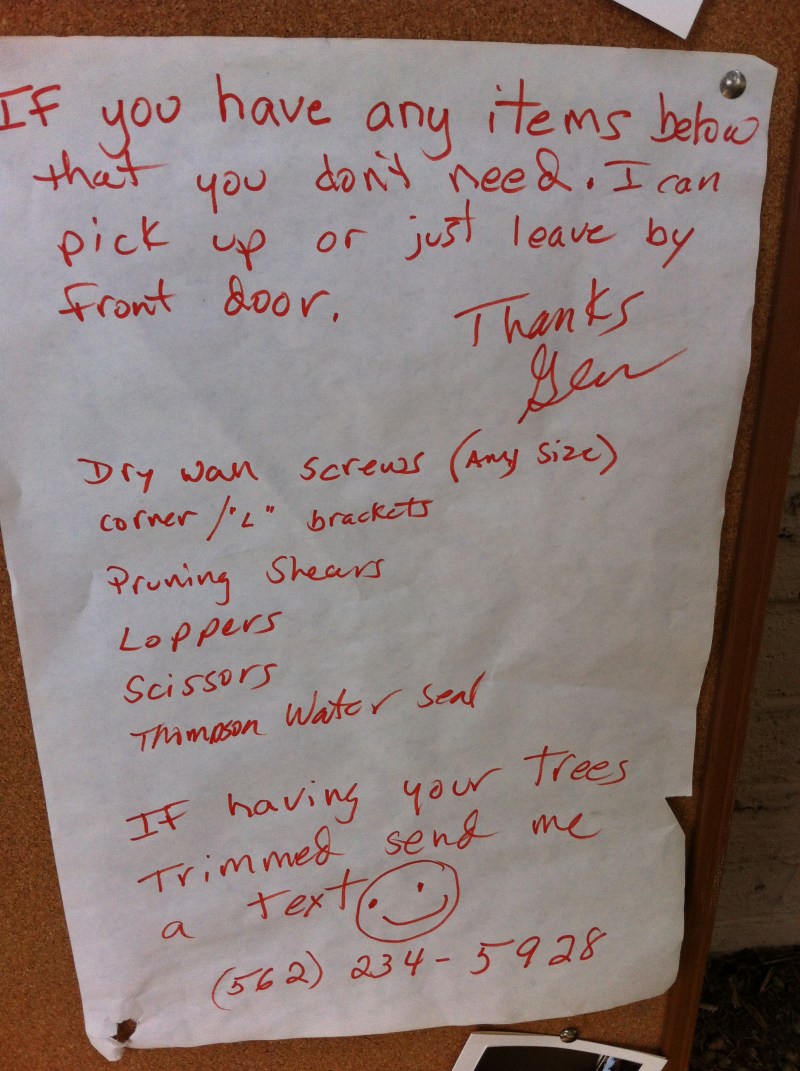 IF you have any items below
that you don't need. I can
pick up or just leave by
front door.
Thanks
Dry wall screws (Any Size)
corner/"L" brackets
Pruning Shears
Loppers
Scissors
Thompson Water seal
IF having your trees
Trimmed send me
a text
(562) 234-5928